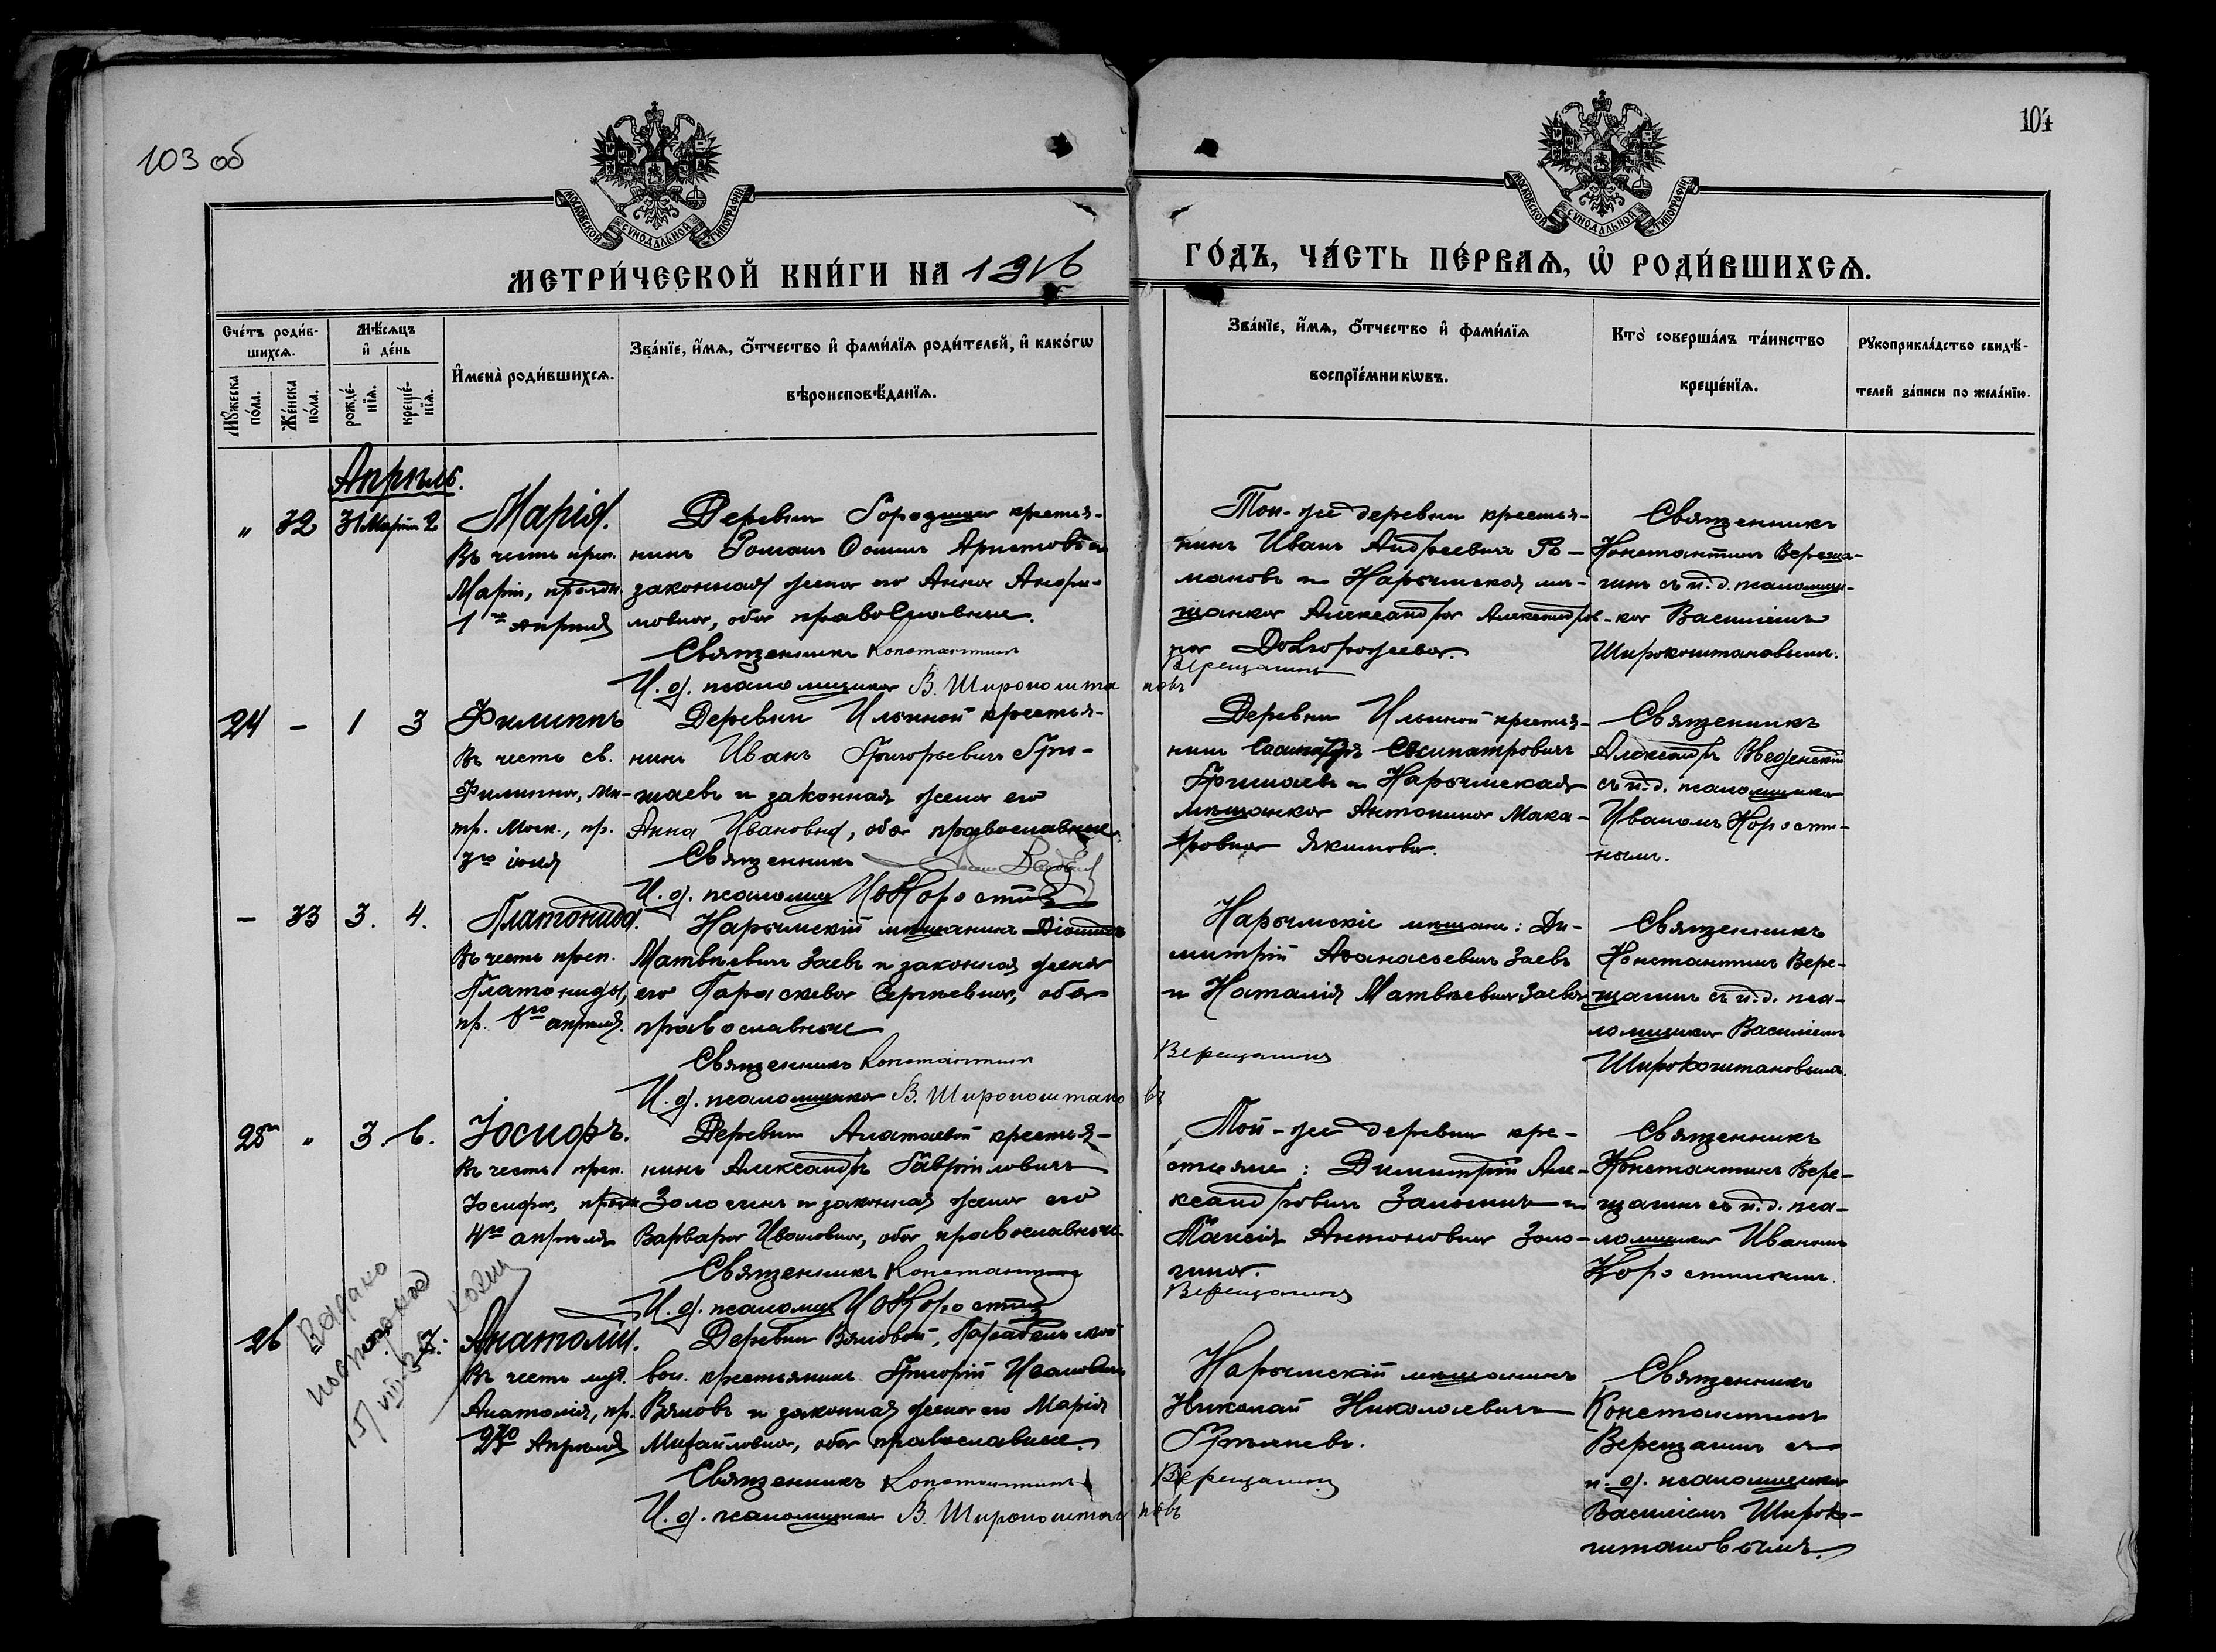 103 об
104
МОСКОВСКОЙ СѴНОДАЛЬНОЙ ТИПОГРАФІИ
МОСКОВСКОЙ СѴНОДАЛЬНОЙ ТИПОГРАФІИ
МЕТРИ́ЧЕСКОЙ КНИ́ГИ НА 1916
ГО́ДЪ, ЧА́СТЬ ПЕ́РВАѦ, Ѽ РОДИ́ВШИХСѦ.
Сче́тъ роди́в-
шихсѧ.
Мѣ́сѧцъ
и҆ де́нь
Мꙋ́жеска
по́ла.
Же́нска
по́ла.
рожде́-
нїѧ.
креще́-
нїѧ.
И҆мена̀ роди́вшихсѧ.
Зва́нїе, и҆́мѧ, ѻ҆́тчество и҆ фами́лїѧ роди́телей, и҆ како́гѡ
вѣроисповѣ́данїѧ.
Зва́нїе, и҆́мѧ, ѻ҆́тчество и҆ фами́лїѧ
воспрїе́мникѡвъ.
Кто̀ соверша́лъ та́инство
креще́нїѧ.
Рꙋкоприкла́дство свидѣ́-
телей за́писи по жела́нїю.
Апрѣль.
" 32 31 Марта 2
Марія.
Въ честь преп.
Маріи, праздн.
1го апрѣля
Деревни Городища крестья-
нинъ Романъ Фоминъ Аристовъ и
законная жена его Анна
мовна, оба православные.
Священникъ Константинъ Верещагинъ
И. д. псаломщика В. Широкоштановъ
Той-же деревни крестья-
нинъ Иванъ Андреевичъ Ро-
мановъ и Нарымская мѣ-
щанка Александра Александров-
на Доброхотова.
Священникъ
Константинъ Вереща-
гинъ съ и. д. псаломщи-
ка Василіемъ
Широкоштановымъ.
24 – 1 3
Филиппъ
Въ честь св.
Филиппа, ми-
тр. Моск., пр.
3го іюля
Деревни Ильиной крестья-
нинъ Иванъ Григорьевичъ Гри-
шаевъ и законная жена его
Анна Ивановна, оба православные.
Священникъ
И. д. псаломщ. И Коростинъ
Деревни Ильиной крестья-
нинъ Сосипатръ Сосипатровичъ
Гришаевъ и Нарымская
мѣщанка Антонина Мака-
ровна Якимова.
Священникъ
Александръ Введенскій
съ и. д. псаломщика
Иваномъ Корости-
нымъ.
– 33 3. 4.
Платонида.
Въ честь преп.
Платониды,
пр. 6го апрѣля.
Нарымскій мѣщанинъ
Матвѣевичъ Заевъ и законная жена
его Параскева Сергѣевна, оба
православные
Священникъ Константинъ Верещагинъ
И. д. псаломщика В. Широкоштановъ
Нарымскіе мѣщане: Ди-
митрій Аѳанасьевичъ Заевъ
и Наталія Матвѣевна Заева
Священникъ
Константинъ Вере-
щагинъ съ и. д. пса-
ломщика Василіемъ
Широкоштановымъ.
25 " 3. 6.
Іосифъ.
Въ честь преп.
Іосифа, праздн.
4го апрѣля
Деревни Алатаевой крестья-
нинъ Александръ Гавріиловичъ
Зологинъ и законная жена его
Варвара Ивановна, оба православные.
Священникъ Константинъ Верещагинъ
И. д. псаломщ. И Коростинъ
Той-же деревни кре-
стьяне: Димитрій Але-
ксандровичъ Зологинъ и
Таисія Антоновна Золо-
гина.
Священникъ
Константинъ Вере-
щагинъ съ и. д. пса-
ломщика Иваномъ
Коростинымъ.
26
Выдано
15/VIII 37. копія
Анатолій.
Въ честь муч.
Анатолія, пр.
23го Апрѣля
Деревни Вяловой, Парабельской
вол. крестьянинъ Григорій Ивановичъ
Вяловъ и законная жена его Марія
Михайловна, оба православные.
Священникъ Константинъ Верещагинъ
И. д. псаломщика В. Широкоштановъ
Нарымскій мѣщанинъ
Николай Николаевичъ
Священникъ
Константинъ
Верещагинъ съ
и. д. псаломщика
Василіемъ Широко-
штановымъ.